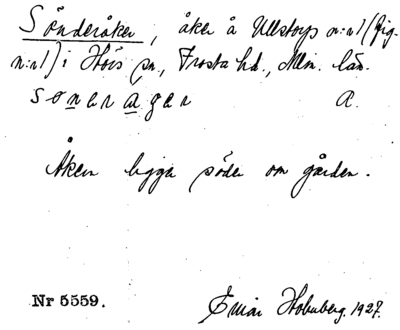 Sönderåker, åker å Ullstorps n:r 1 (fig.
n:r 1) i Hörs sn, Frosta hd., Mlm. län.
sönerager A.
Åkern ligger söder om gården.
Nr 5559. Einar Holmberg. 1927.